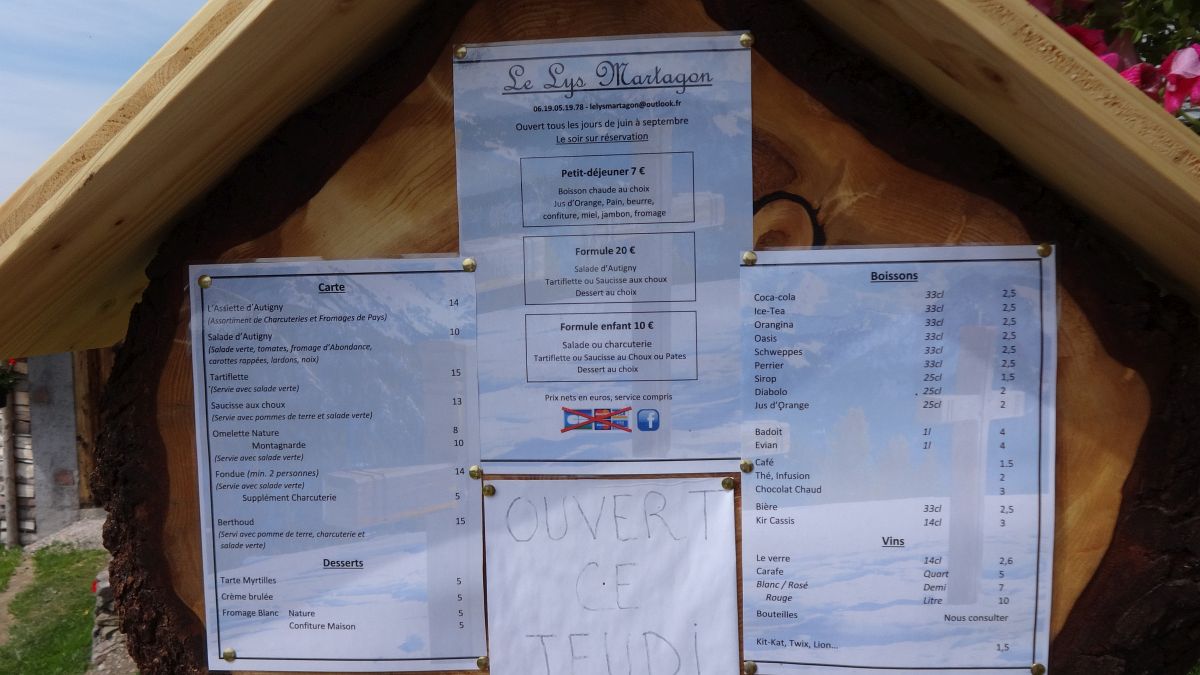 Le Lys Martagon
06.19.05.19.78 - lelysmartagon@outlook.fr
Ouvert tous les jours de juin à septembre
Le soir sur réservation
Petit-déjeuner 7 €
Boisson chaude au choix
Jus d'Orange, Pain, beurre,
confiture, miel, jambon, fromage
Formule 20 €
Salade d'Autigny
Tartiflette ou Saucisse aux choux
Dessert au choix
Formule enfant 10 €
Salade ou charcuterie
Tartiflette ou Saucisse au Choux ou Pates
Dessert au choix
Prix nets en euros, service compris
Carte
L'Assiette d'Autigny 14
(Assortiment de Charcuteries et Fromages de Pays)
Salade d'Autigny 10
(Salade verte, tomates, fromage d'Abondance,
carottes rappées, lardons, noix)
Tartiflette 15
(Servie avec salade verte)
Saucisse aux choux 13
(Servie avec pommes de terre et salade verte)
Omelette Nature 8
Montagnarde 10
(Servie avec salade verte)
Fondue (min. 2 personnes) 14
(Servie avec salade verte)
Supplément Charcuterie 5
Berthoud 15
(Servi avec pomme de terre, charcuterie et
salade verte)
Desserts
Tarte Myrtilles 5
Crème brulée 5
Fromage Blanc Nature 5
Confiture Maison 5
OUVERT
CE
JEUDi
Boissons
Coca-cola 33cl 2,5
Ice-Tea 33cl 2,5
Orangina 33cl 2,5
Oasis 33cl 2,5
Schweppes 33cl 2,5
Perrier 33cl 2,5
Sirop 25cl 1,5
Diabolo 25cl 2
Jus d'Orange 25cl 2
Badoit 1l 4
Evian 1l 4
Café 1.5
Thé, Infusion 2
Chocolat Chaud 3
Bière 33cl 2,5
Kir Cassis 14cl 3
Vins
Le verre 14cl 2,6
Carafe Quart 5
Blanc / Rosé Demi 7
Rouge Litre 10
Bouteilles Nous consulter
Kit-Kat, Twix, Lion... 1,5